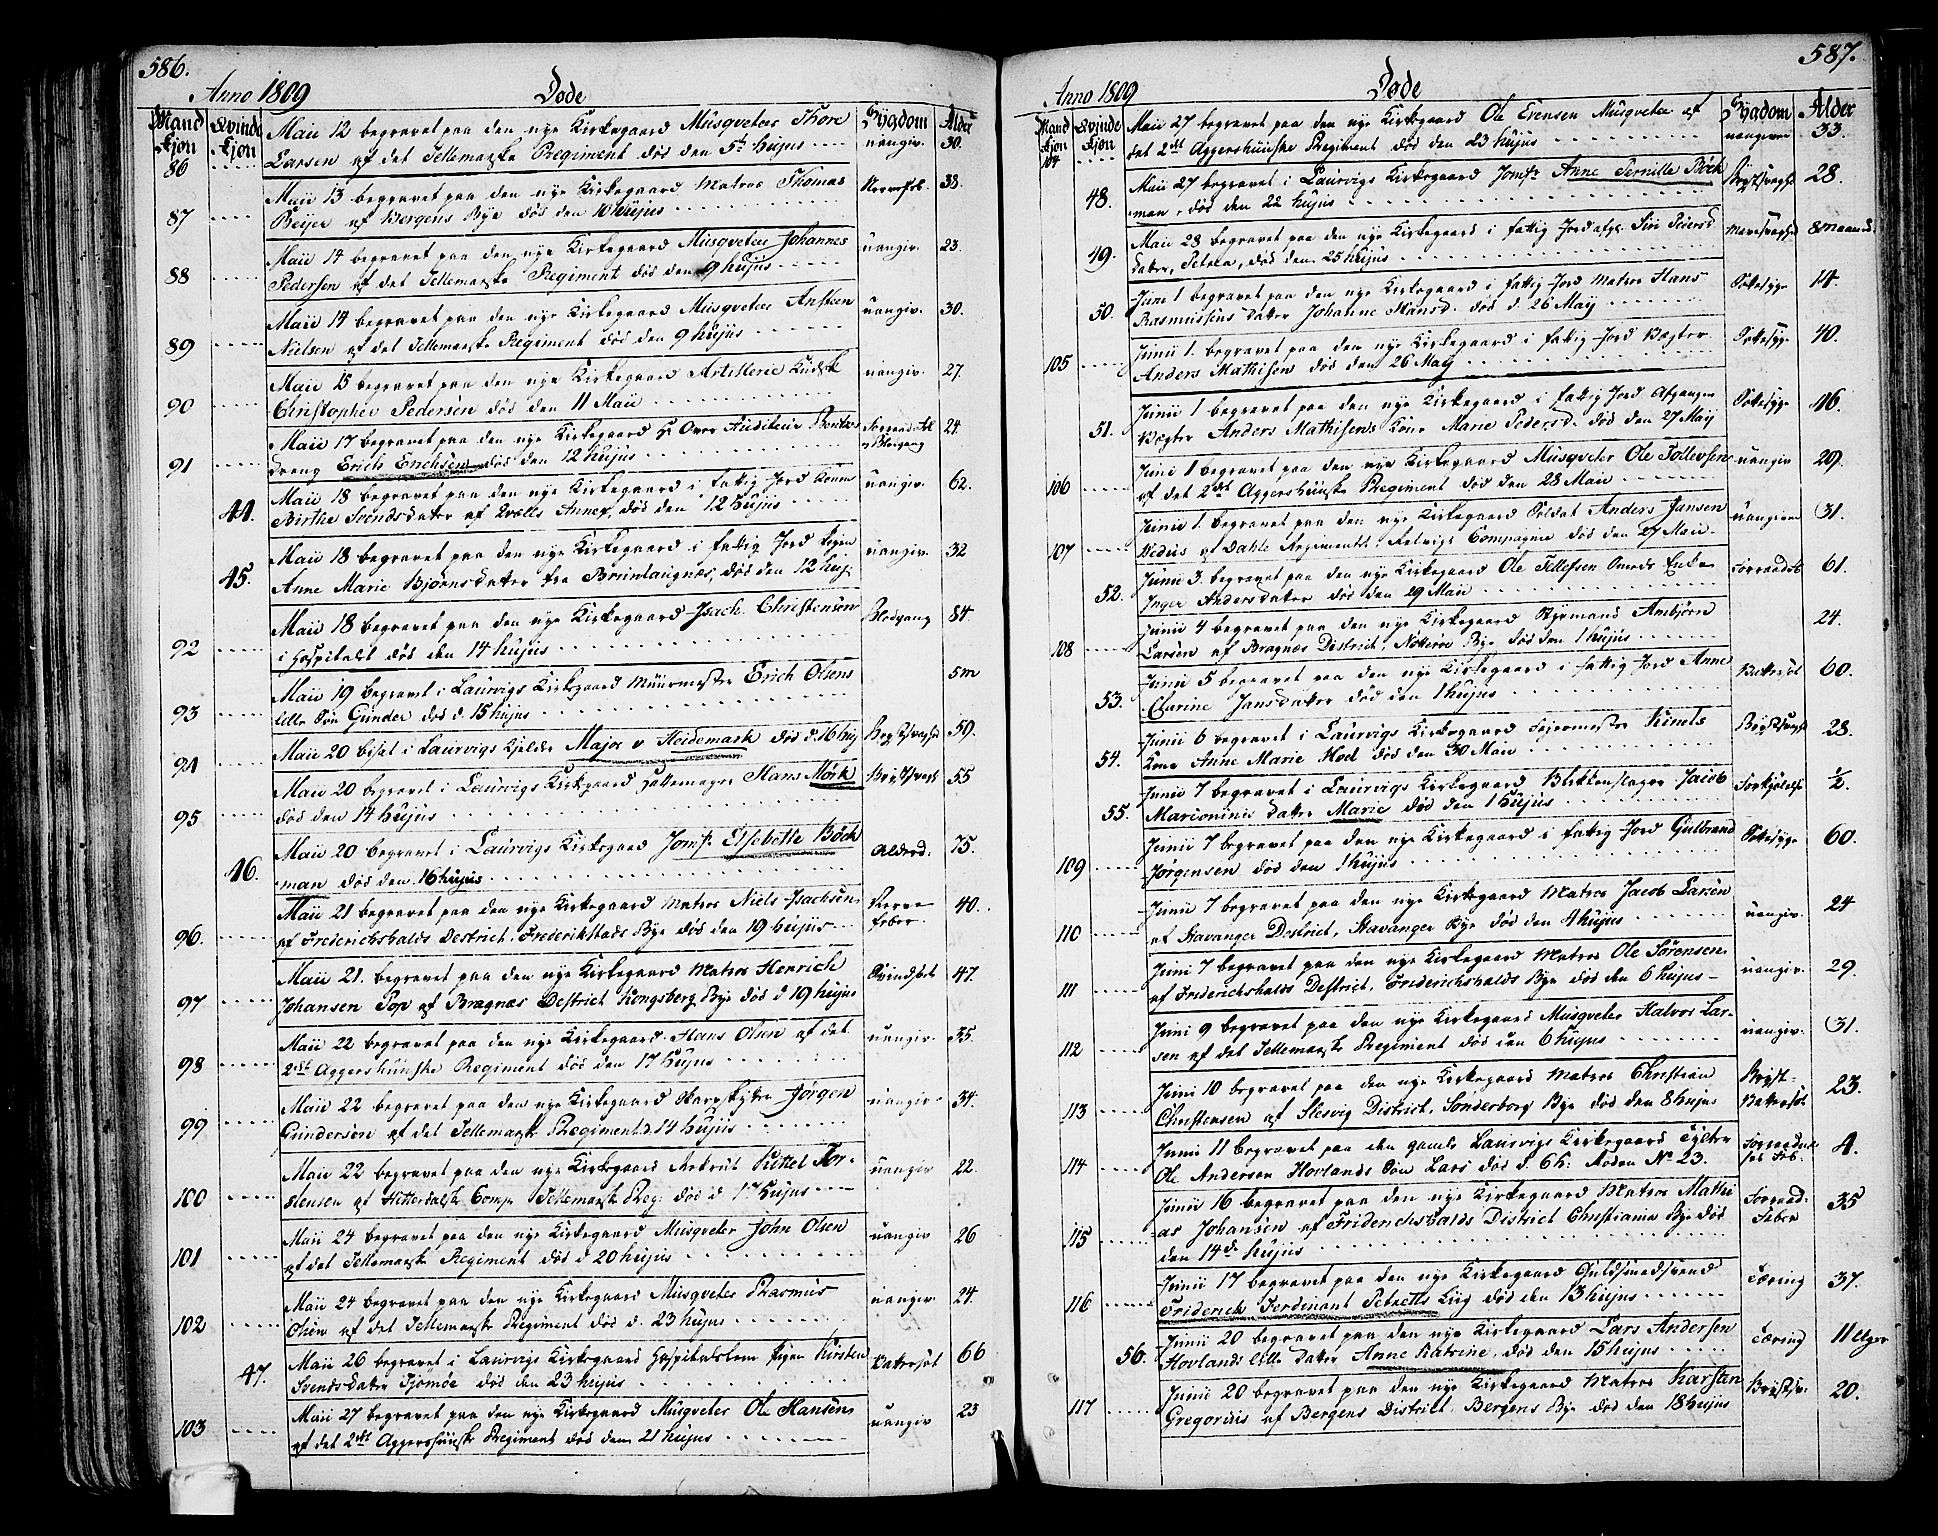 586.
Anno 1809 Døde
Mand Kjøn Qvinde Kjøn Sygdom Alder
86 Maii 12 begravet paa den nye Kirkegaard Musqveteer Thore uangiv. 30.
Larsen af det Tellemarske Regiment død den 5te hujus
87 Maii 13 begravet paa den nye Kirkegaard Matros Thomas 38.
Beijer af Bergens Bye død den 10 hujus
88 Maii 14 begravet paa den nye Kirkegaard Musqveteer Johannes uangiv. 23.
Pedersen af det Tellemarske Regiment død den 9 hujus
89 Maii 14 begravet paa den nye Kirkegaard Musqveteer Ansteen uangiv. 30.
Nielsen af det Tellemarske Regiment død den 9 hujus
90 Maii 15 begravet paa den nye Kirkegaard Artillerie Kudsk uangiv. 27.
Christopher Pedersen død den 11 Maii
91 Maii 17 begravet paa den nye Kirkegaard Hr Over Auditeur 24.
Dreng Erich Erichsen død den 12 hujus
44. Maii 18 begravet paa den nye Kirkegaard i fattig Jord Konen uangiv. 62.
Birthe Svendsdatter af Qvælle Annex, død den 12 hujus
45. Maii 18 begravet paa den nye Kirkegaard i fattig Jord Pigen uangiv. 32
Anne Marie Bjørnsdatter fra Brunlaugnæs, død den 12 huj.
92 Maii 18 begravet paa den nye Kirkegaard Isach Christensen Blodgang 84.
i Hospitalet død den 14 hujus
93 Maii 19 begravet i Laurvigs Kirkegaard Muurmester Erich Olsens 5m
lille Søn Gunder død d. 15 hujus
94 Maii 20 bisat i Laurvigs Kjelder Major v Heidemark død d. 16 huj Brystsvaghed 59.
95 Maii 20 begravet i Laurvigs Kirkegaard Hattemager Hans Mørk Brystsvagh 55
død den 14 hujus
46. Maii 20 begravet i Laurvigs Kirkegaard Jomfr. Elsebethe Böck- Alderd. 75.
man død den 16 hujus
96. Maii 21 begravet paa den nye Kirkegaard Matros Niels Isachsen Nerve Feber 40.
af Frederichshalds Destrict, Frederikstads Bye død den 19 hujus
97 Maii 21. begravet paa den nye Kirkegaard Matros Henrich 47.
Johansen Top af Bragnæs Destrict Kongsberg Bye død d 19 hujus
98 Maii 22 begravet paa den nye Kirkegaard Hans Olsen af det uangiv. 35.
2det Aggershuuske Regiment død den 17 hujus
99 Maii 22 begravet paa den nye Kirkegaard Skarpskytter Jørgen uangiv 34.
Gundersen af det Tellemarske Regiment d. 14 hujus
100 Maii 22 begravet paa den nye Kirkegaard Rekrut Kittel Tor- uangiv 22.
stensen af Hitterdalske Comp. Tellemarske Reg: død d 17 hujus
101 Maii 24 begravet paa den nye Kirkegaard Musqveter John Olsen uangiv 26
af det Tellemarske Regiment død d 20 hujus
102 Maii 24 begravet paa den nye Kirkegaard Musqveter Rasmus uangiv. 24.
Olsen af det Tellemarske Regiment død d. 23 hujus
47. Maii 26 begravet i Laurvigs Kirkegaard Hospitalslem Pigen Kirsten Vattersot 66
Svendsdatter Tjømöe død den 23 hujus
103 Maii 27 begravet paa den nye Kirkegaard Musqveter Ole Hansen uangiv 23
af det 2det Aggershuuske Regiment død den 21 hujus
587.
Anno 1809 Døde
Mand Kjøn Qvinde Kjøn Sygdom Alder
104 Maii 27 begravet paa den nye Kirkegaard Ole Evensen Musqveteer af uangiven 33.
det 2det Aggershuuske Regiment død den 23 hujus
48. Maii 27 begravet i Laurvigs Kirkegaard Jomfr. Anne Pernille Böck- Brystsvaghed 28.
man, død den 22 hujus
49. Maii 28 begravet paa den nye Kirkegaard i fattig Jord afg. Siri Peiersd 8 maaned.
datter, Petrea, død den 25 hujus
50. Juni 1 begravet paa den nye Kirkegaard i fattig Jord Matros Hans Sottesyge 14.
Rasmussens datter Johanne Hansd. død d. 26 Maij
105 Junii 1. begravet paa den nye Kirkegaard i fattig Jord Vægter Sottesyge 40.
Anders Mathisen død den 26 Maij
51. Junii 1 begravet paa den nye Kirkegaard i fattig Jord Afgangen Sottesyge 46.
Vægter Anders Mathisens Kone Marie Pedersd. død den 27 Maij
106 Junii 1 begravet paa den nye Kirkegaard Musqveter Ole Tollevsen uangiv 29.
af det 2det Aggershuuske Regiment død den 28 Maii
107 Junii 1. begravet paa den nye Kirkegaard Soldat Anders Jansen uangiven 31.
af Dahls Regiment, Compagnie død den 27 Maii
52. Junii 3 begravet paa den nye Kirkegaard Ole Tellefsen Enke 61.
Inger Andersdatter død den 29 Maii
108 Junii 4 begravet paa den nye Kirkegaard Styrmand Ambjørn 24.
Larsen af Bragnæs District, Nøtterøe Bye død den 1 hujus
53. Junii 5 begravet paa den nye Kirkegaard i fattig Jord Anne Vattersot 60.
Carine Jansdatter død den 1 hujus
54. Junii 6 begravet i Laurvigs Kirkegaard Feiermester Kinels Brystsvagh 28.
Kone Anne Marie Hod død den 30 Maii
55. Junii 7 begravet i Laurvigs Kirkegaard Blikkenslager Jacob Forkjølelse ½.
Marioninis datter Marie død den 1 hujus
109 Junii 7 begravet paa den nye Kirkegaard i fattig Jord Gulbrand Sottesyge 60.
Jørgensen død den 1 hujus
110 Junii 7 begravet paa den nye Kirkegaard Matros Jacob Larsen uangiv. 24
af Stavanger District, Stavanger Bye død den 4 hujus
111 Juni 7 begravet paa den nye Kirkegaard Matros Ole Sørensen uangiv. 29.
af Friderichshalds Destrict, Friderichshalds Bye død den 6 hujus
112 Juni 9 begravet paa den nye Kirkegaard Musqveter Halvor Lar- uangiv. 31.
sen af det Tellemarske Regiment død den 6 hujus
113 Juni 10 begravet paa den nye Kirkegaard Matros Christian Bryst- Vattersot 23.
Christensen af Slesvig District, Sonderborg Bye død den 8 hujus
114 Junii 11 begravet paa den gamle Laurvigs Kirkegaard 4.
Ole Andersen Hovlands Søn Lars død d. 6 h: No 23.
115 Junii 16 begravet paa den nye Kirkegaard Matros Mathi- Forraad- Feber 35
as Johansen af Friderichshalds District Christiania Bye død
den 14de hujus
116 Junii 17 begravet paa den nye Kirkegaard Guldsmedsvend Tæring 37.
Friderich Ferdinant Petretts Liig død den 13 hujus
56. Junii 20 begravet paa den nye Kirkegaard Lars Andersen Tæring 11 Uger
Hovlands lille datter Anne Katrine, død den 15 hujus
117 Junii 20 begravet paa den nye Kirkegaard Matros Karsten Brystsv. 20.
Gregoriis af Bergens District Bergens Bye død den 18 hujus